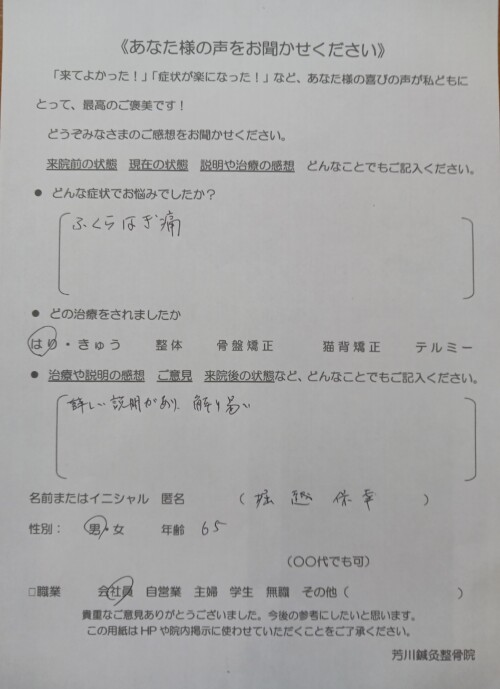 《あなた様の声をお聞かせください》
「来てよかった！」「症状が楽になった！」など、あなた様の喜びの声が私どもに
とって、最高のご褒美です！
どうぞみなさまのご感想をお聞かせください。
来院前の状態　現在の状態　説明や治療の感想　どんなことでもご記入ください。
● どんな症状でお悩みでしたか？
ふくらはぎ痛
● どの治療をされましたか
はり・きゅう　整体　骨盤矯正　猫背矯正　テルミー
● 治療や説明の感想　ご意見　来院後の状態など、どんなことでもご記入ください。
詳しい説明があり、解り易い
名前またはイニシャル　匿名　（ 堀 　 保幸 ）
性別：　男・女　年齢　65
（〇〇代でも可）
□職業　会社員　自営業　主婦　学生　無職　その他（　）
貴重なご意見ありがとうございました。今後の参考にしたいと思います。
この用紙はHPや院内掲示に使わせていただくことをご了承ください。
芳川鍼灸整骨院